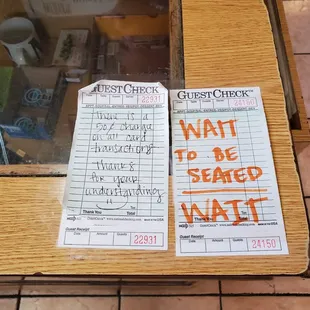 GUESTCHECK
22931
there is a
50¢ charge
on all card
transactions
Thanks
for your
understanding
Thank You
Total
Guest Receipt
Date
Amount
22931
GUESTCHECK
24150
WAIT
TO BE
SEATED
WAIT
Thank You
Guest Receipt
Date
Amount
24150